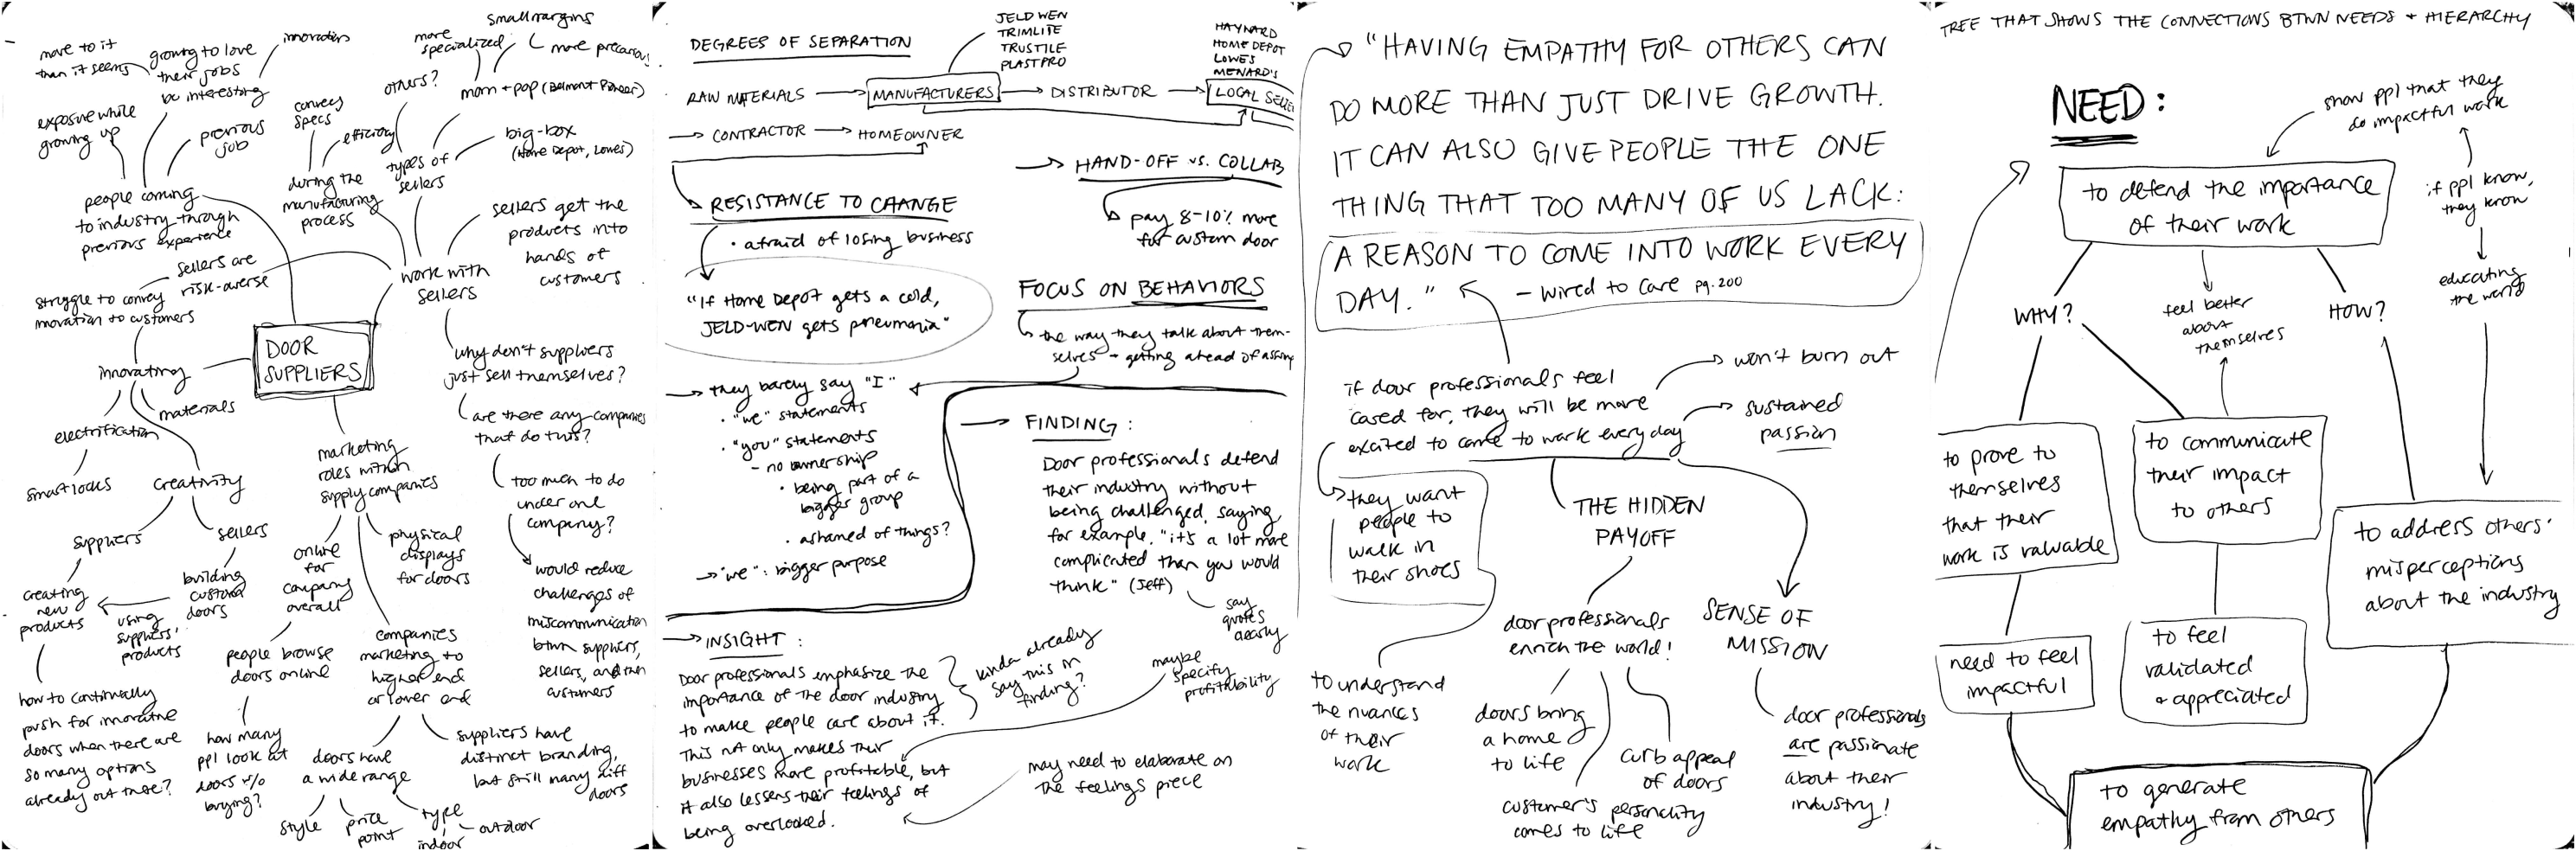 small margins
more precarious
more specialized
others?
mom + pop (Belmont Pioneer)
big-box
(Home Depot, Lowes)
types of
sellers
move to it
than it seems
growing to love
their jobs
be interesting
innovators
exposure while
growing up
previous
job
people coming
to industry through
previous experience
convey
specs
efficiency
during the
manufacturing
process
work with
sellers
sellers get the
products into
hands of
customers
sellers are
risk-averse
struggle to convey
innovation to customers
DOOR
SUPPLIERS
innovating
materials
electrification
smart locks
creativity
suppliers
sellers
creating
new
products
using
suppliers'
products
building
custom
doors
how to continually
push for innovative
doors when there are
so many options
already out there?
why don't suppliers
just sell themselves?
are there any companies
that do this?
too much to do
under one
company?
would reduce
challenges of
miscommunication
btwn suppliers,
sellers, and then
customers
marketing
roles within
supply companies
online
for
company
overall
physical
displays
for doors
people browse
doors online
how many
ppl look at
doors w/o
buying?
companies
marketing to
higher end
or lower end
doors have
a wide range
style
price
point
type
indoor
outdoor
suppliers have
distinct branding,
but still many diff
doors
DEGREES OF SEPARATION
JELD WEN
TRIMLITE
TRUSTILE
PLASTPRO
HAYNARD
HOME DEPOT
LOWES
MENARD'S
RAW MATERIALS → MANUFACTURERS → DISTRIBUTOR → LOCAL SELLE
→ CONTRACTOR → HOMEOWNER
→ HAND-OFF vs. COLLAB
pay 8-10% more
for custom door
RESISTANCE TO CHANGE
• afraid of losing business
"If Home Depot gets a cold,
JELD-WEN gets pneumonia"
FOCUS ON BEHAVIORS
the way they talk about them-
selves + getting ahead of assump
→ they barely say "I"
• "we" statements
• "you" statements
- no ownership
• being part of a
bigger group
• ashamed of things?
→ "we": bigger purpose
→ FINDING:
Door professionals defend
their industry without
being challenged, saying,
for example, "it's a lot more
complicated than you would
think" (Jeff)
say
quotes
clearly
→ INSIGHT:
Door professionals emphasize the
importance of the door industry
to make people care about it.
This not only makes their
businesses more profitable, but
it also lessens their feelings of
being overlooked.
kinda already
say this in
finding?
maybe
specify
profitability
may need to elaborate on
the feelings piece
"HAVING EMPATHY FOR OTHERS CAN
DO MORE THAN JUST DRIVE GROWTH.
IT CAN ALSO GIVE PEOPLE THE ONE
THING THAT TOO MANY OF US LACK:
A REASON TO COME INTO WORK EVERY
DAY." - Wired to Care pg. 200
if door professionals feel
cared for, they will be more
excited to come to work everyday
won't burn out
sustained
passion
they want
people to
walk in
their shoes
to understand
the nuances
of their
work
THE HIDDEN
PAYOFF
door professionals
enrich the world!
doors bring
a home
to life
customer's personality
comes to life
curb appeal
of doors
SENSE OF
MISSION
door professionals
are passionate
about their
industry!
TREE THAT SHOWS THE CONNECTIONS BTWN NEEDS + HIERARCHY
NEED:
show ppl that they
do impactful work
to defend the importance
of their work
if ppl know,
they know
educating
the world
WHY?
feel better
about
themselves
HOW?
to prove to
themselves
that their
work is valuable
to communicate
their impact
to others
to address others'
misperceptions
about the industry
need to feel
impactful
to feel
validated
+ appreciated
to generate
empathy from others